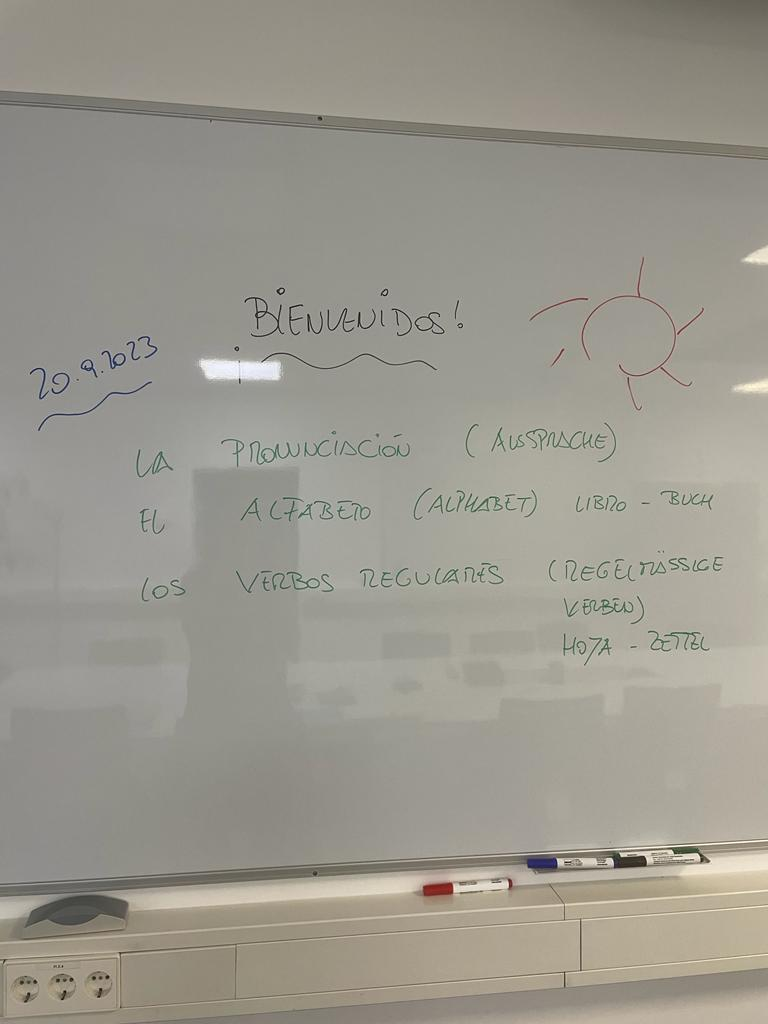 ¡BIENVENIDOS!
20.9.2023
LA PRONUNCIACIÓN (AUSSPRACHE)
EL ALFABETO (ALPHABET) LIBRO - BUCH
LOS VERBOS REGULARES (REGELMÄSSIGE
VERBEN)
HOJA - ZETTEL